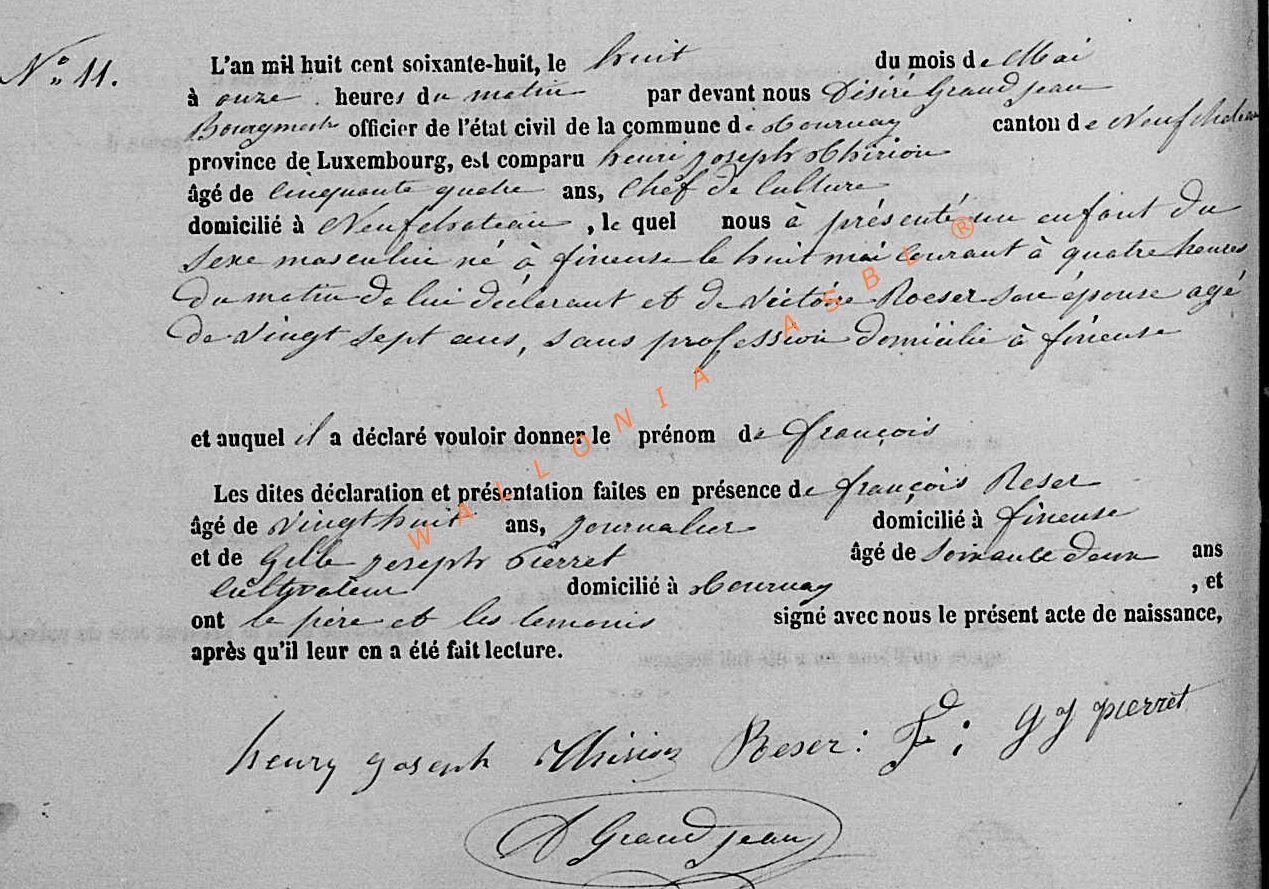 N° 11.
L'an mil huit cent soixante-huit, le huit du mois de Mai
à onze heures du matin par devant nous Désiré Grandjean
Bourgmestre officier de l'état civil de la commune de Tournay canton de Neufchateau
province de Luxembourg, est comparu henri joseph thirion
âgé de Cinquante quatre ans, Chef de Culture
domicilié à Neufchateau , le quel nous à présenté un enfant du
Sexe masculin né à fineuse le huit mai Courant à quatre heures
du matin de lui déclarant et de Victoire Roeser son épouse agé
de vingt sept ans, sans profession domicilié à fineuse
et auquel il a déclaré vouloir donner le prénom de françois
Les dites déclaration et présentation faites en présence de françois Reser
âgé de vingt huit ans, journalier domicilié à fineuse
et de Gille joseph Pierret âgé de soixante deux ans
Cultivateur domicilié à Tournay , et
ont le père et les temoins signé avec nous le présent acte de naissance,
après qu'il leur en a été fait lecture.
henry joseph Thirion Reser : F : g J pierret
D Grandjean
WALLONIA ASBL ®